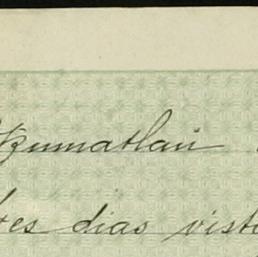 Ozumatlan
tes dias vist